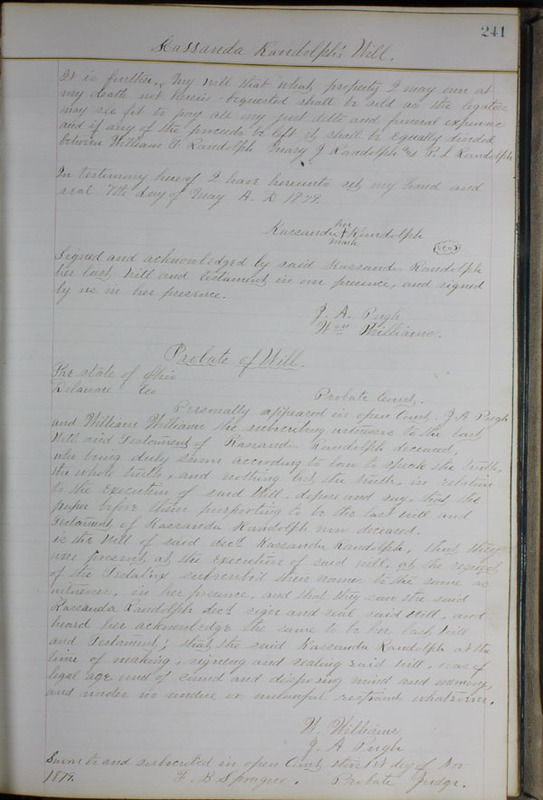 241
Kassanda Randolph's Will.
It is further my will that what property I may own at
my death not herein bequested shall be sold as the legatees
may see fit to pay all my just debts and funeral expense
and if any of the proceeds be left it shall be equally divided
between William A. Randolph Mary J Randolph & R. L Randolph
In testimony hereof I have hereunto set my hand and
seal 7th day of May A. D 1879.
her
Kassanda X Randolph
mark
(seal)
Signed and acknowledged by said Kassanda Randolph
her last will and testament in our presence, and signed
by us in her presence.
J. A. Pugh
Wm Williams.
Probate of Will.
The state of Ohio
Delaware Co
Probate Court.
Personally appeared in open Court, J. A Pugh
and William Williams the subscribing witnesses to the last
Will and Testament of Kassanda Randolph deceased,
who being duly sworn according to law to speak the truth,
the whole truth, and nothing but the truth, in relation
to the execution of said Will, depose and say, that the
paper before them purporting to be the last will and
Testament of Kassanda Randolph now deceased.
is the Will of said decd Kassanda Randolph, that they
were present at the execution of said will, at the request
of the Testatrix subscribed their names to the same as
witnesses, in her presence, and that they saw the said
Kassanda Randolph decd sign and seal said Will, and
heard her acknowledge the same to be her last Will
and Testament; that the said Kassanda Randolph at the
time of making, signing and sealing said will, was of
legal age and of sound and disposing mind and memory,
and under no undue or unlawful restraint whatsoever.
W. Williams
J. A Pugh
Sworn to and subscribed in open Court this 1st day of Nov
1879.
F. B Sprague. Probate Judge.